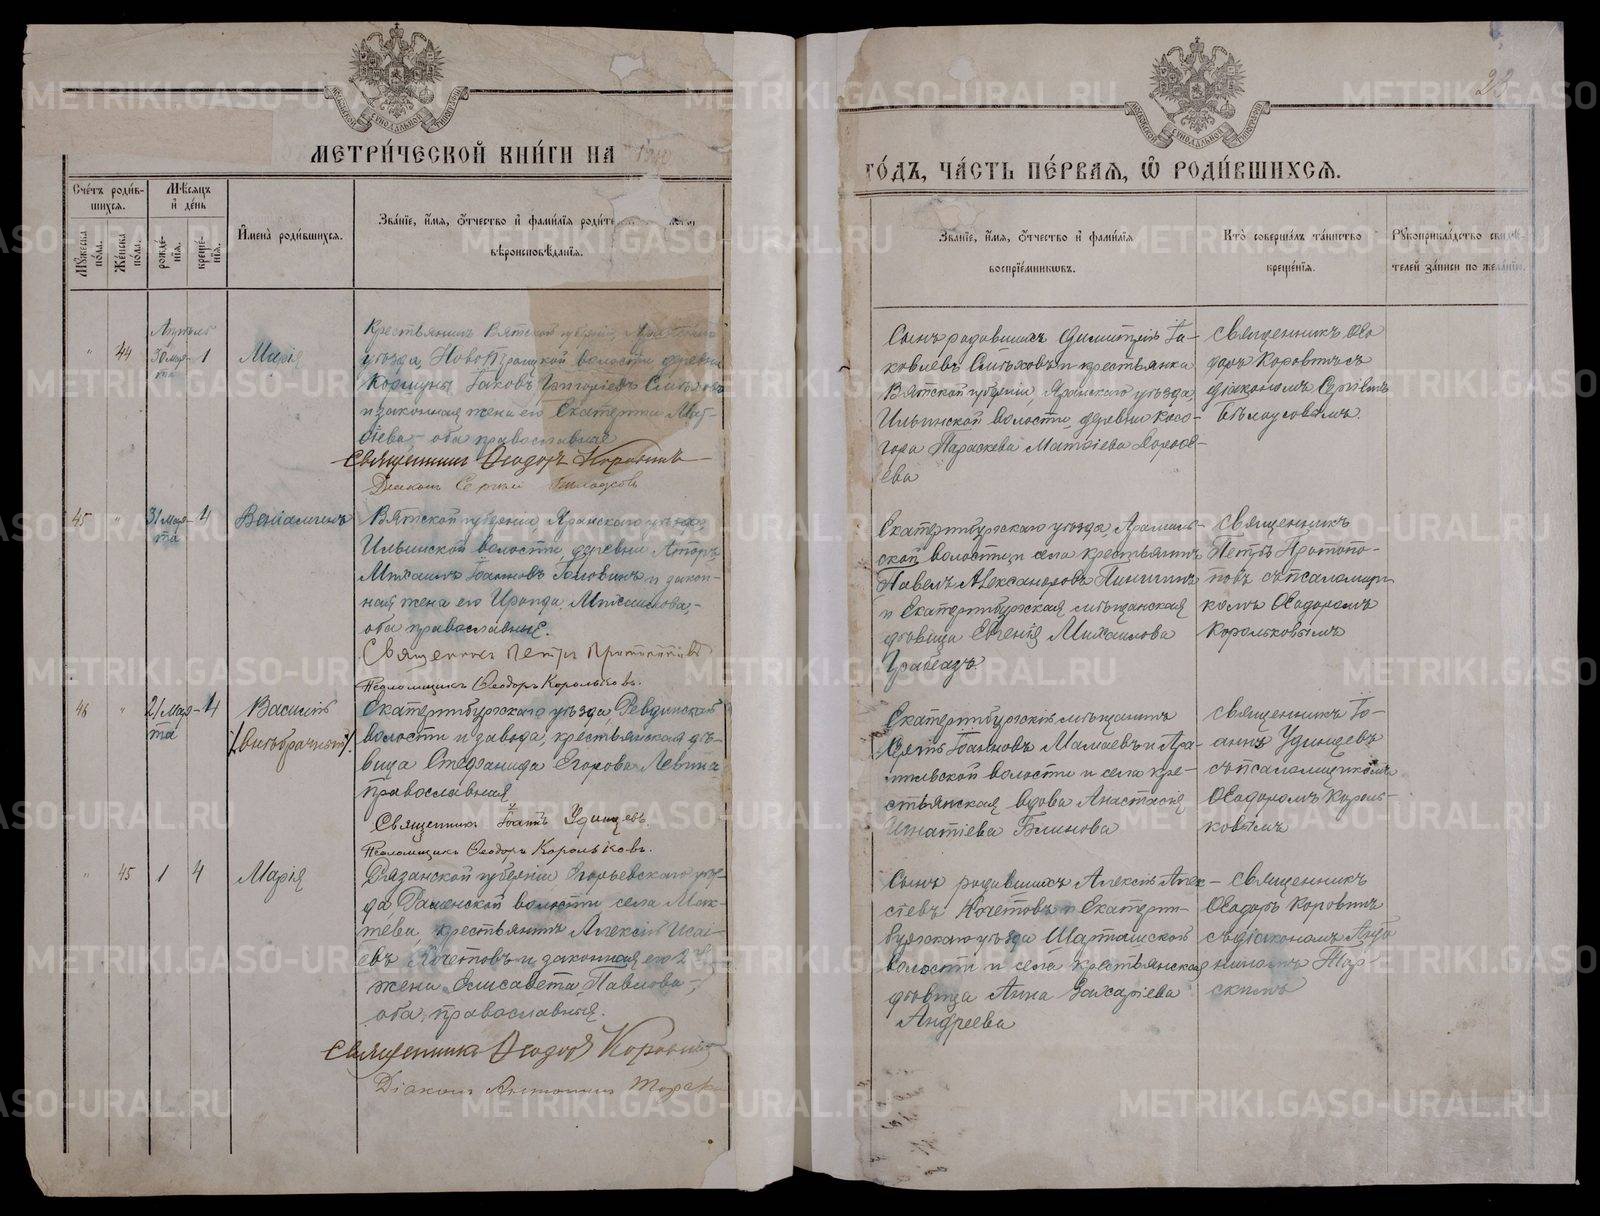 МЕТРИ́ЧЕСКОЙ КНИ́ГИ НА
Сче́тъ роди́в-
шихся.
Му́жеска по́ла.
Же́нска по́ла.
Мѣ́сяцъ
и҆ де́нь
рожде́-
нія.
креще́-
нія.
И҆мена̀ роди́вшихся.
Зва́ніе, и҆́мя, ѻ҆́тчество и҆ фами́лія
вѣроисповѣ́данія.
Апрѣль
" 44 30 мар- 1 Марія
та
Крестьянинъ Вятской губерніи, Яранскаго
уѣзда, Новоторъяльской волости деревни
Іаковъ Григоріевъ Смѣховъ
и законная жена его Екатерина Мат-
ѳіева, – оба православные
Священникъ Ѳеодоръ Коровинъ
Діаконъ Сергій Бѣлоусовъ
45 " 31 мар- 4 Веніаминъ
та
Вятской губерніи, Яранскаго уѣзда
Ильинской волости, деревни
Михаилъ Іоанновъ Головинъ и закон-
ная жена его Ираида Михаилова, –
оба православные.
Священникъ Петръ Протопоповъ
Псаломщикъ Ѳеодоръ Корольковъ.
46 " 21 мар- 4 Василій
та (внѣбрачный).
Екатеринбургскаго уѣзда, Ревдинской
волости и завода, крестьянская дѣ-
вица Стефанида Егорова Левина
православная
Священникъ Іоаннъ Удинцевъ
Псаломщикъ Ѳеодоръ Корольковъ.
" 45 1 4 Марія
Рязанской губерніи Егорьевскаго уѣз-
да, Раменской волости села Мак-
крестьянинъ Алексій Исаі-
евъ Кочетовъ и законная его 2
жена Елисавета Павлова –,
оба, православные.
Священникъ Ѳеодоръ Коровинъ
Діаконъ Антонинъ
23
ГО́ДЪ, ЧА́СТЬ ПЕ́РВАЯ, Ѽ РОДИ́ВШИХСЯ.
Зва́ніе, и҆́мя, ѻ҆́тчество и҆ фами́лія
воспріе́мниковъ.
Кто̀ соверша́лъ та́инство
креще́нія.
Рꙋкоприкла́дство свидѣ́-
телей за́писи по жела́нію.
Сынъ родившихъ Димитрій Іа-
ковлевъ Смѣховъ и крестьянка
Вятской губерніи, Яранскаго уѣзда,
Ильинской волости, деревни Косо-
гора Параскева Матѳіева Дороѳ-
еева
Священникъ Ѳео-
доръ Коровинъ съ
діакономъ Сергіемъ
Бѣлоусовымъ.
Екатеринбургскаго уѣзда, Арамиль-
ской волости и села крестьянинъ
Павелъ Александровъ Пинигинъ
и Екатеринбургская мѣщанская
дѣвица Евгенія Михаилова
Священникъ
Петръ Протопо-
повъ съ псаломщи-
комъ Ѳеодоромъ
Корольковымъ
Екатеринбургскій мѣщанинъ
Іоанновъ Мамаевъ и Ара-
мильской волости и села кре-
стьянская вдова Анастасія
Игнатіева Блинова
Священникъ Іо-
аннъ Удинцевъ
съ псаломщикомъ
Ѳеодоромъ Король-
ковымъ
Сынъ родившихъ Алексій Алек-
сіевъ Кочетовъ и Екатерин-
бургскаго уѣзда Шарташской
волости и села крестьянская
дѣвица Анна Захаріева
Андреева
Священникъ
Ѳеодоръ Коровинъ
съ діакономъ Анто-
ниномъ Тор-
скимъ
METRIKI.GASO-URAL.RU